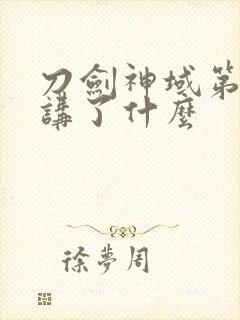 刀劍神域第
講了什麼
徐夢周